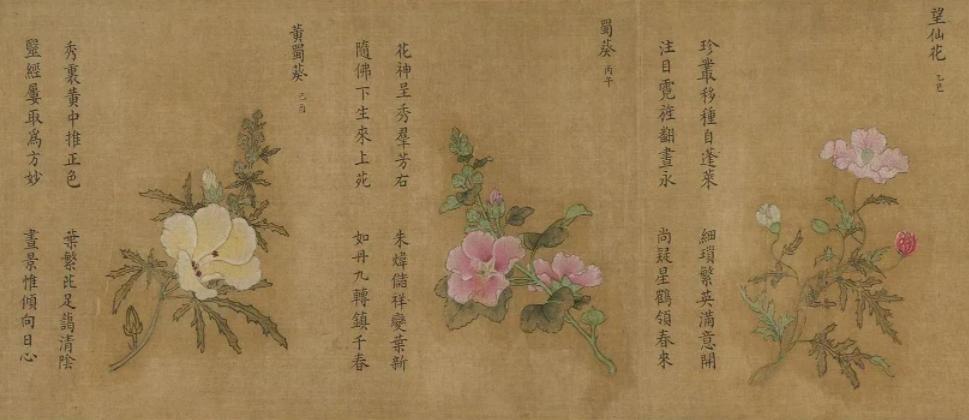 望仙花 乙巳
珍叢移種自蓬萊 細瑣繁英滿意開
注目霓旌翻晝永 尚疑星鶴領春來
蜀葵 丙午
花神呈秀羣芳右 朱煒儲祥變葉新
隨佛下生來上苑 如丹九轉鎮千春
黃蜀葵 己酉
秀裏黃中推正色 葉繁芘足藹清陰
毉經屢取爲方妙 晝景惟傾向日心